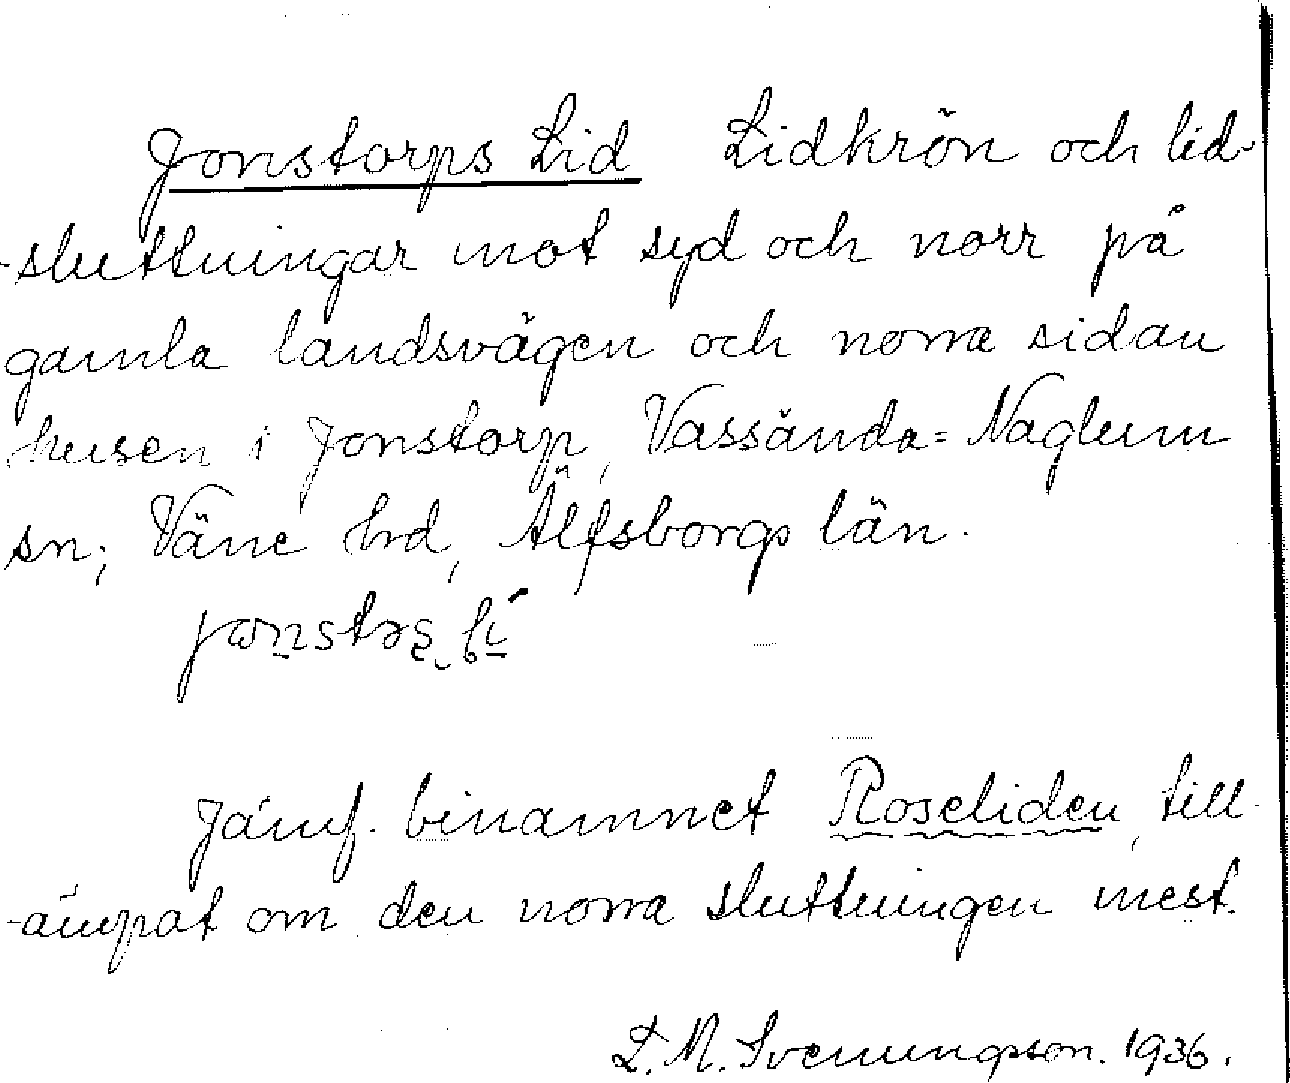 Jonstorps Lid Lidkrön och lid-
-sluttningar mot syd och norr på
gamla landsvägen och norra sidan
husen i Jonstorp, Vassända=Naglum
sn; Väne hrd, Älfsborgs län.
Jämf. binamnet Roseliden, till-
-ämpat om den norra sluttningen mest.
L. M. Svenungsson. 1936.